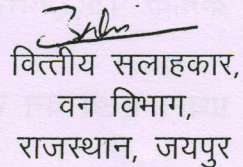 वित्तीय सलाहकार,
वन विभाग,
राजस्थान, जयपुर